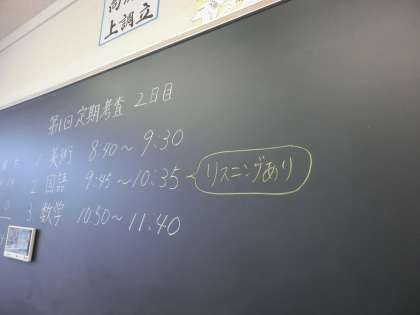 上調立
第1回定期考査 2日目
1 美術 8:40～9:30
2 国語 9:45～10:35 リスニングあり
3 数学 10:50～11:40